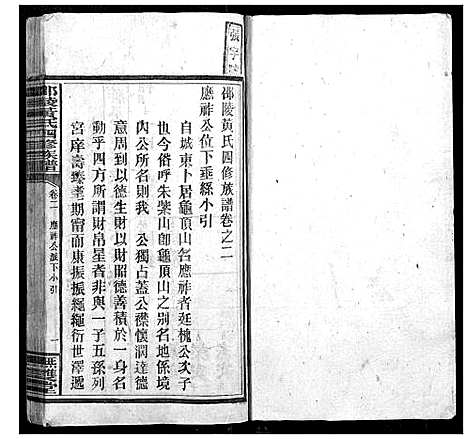 張字號
邵陵黃氏四修族譜卷之二
應祚公位下垂絲小引
自城東卜居龜頂山名應祚者延槐公次子
也今俗呼朱紫山卽龜頂山地名係境
內公所名則我　公獨占蓋公襟懷濶達德
意周到以德生財以財昭德善積於一身名
動乎四方所謂財帛星者非與一子五孫列
宮庠壽臻耄期甯而康振振繩繩衍世澤遞
邵陵黃氏四修族譜
卷二　應祚公派下小引
一
無雙堂